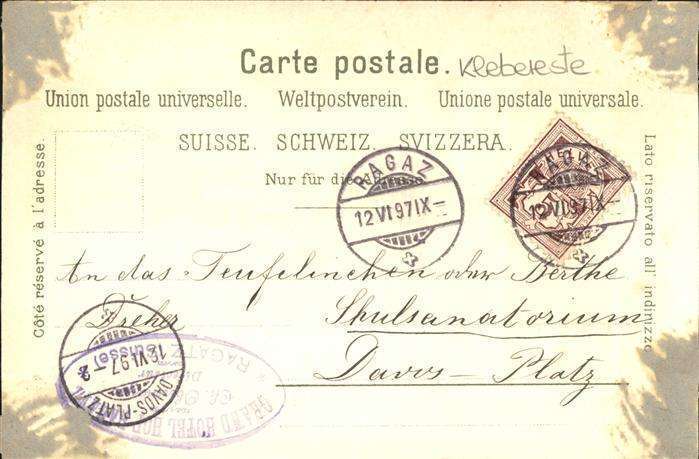 Carte postale. Klebereste
Union postale universelle. Weltpostverein. Unione postale universale.
SUISSE. SCHWEIZ. SVIZZERA.
Nur für die
Côté réservé à l'adresse.
Lato riservato all' indirizzo
RAGAZ
12 VI 97 IX –
RAGAZ
12 VI 97 IX –
An das Teufelinchen oder Berthe
Dreher Shulsanatorium
Davos-Platz
DAVOS-PLATZ
(Suisse)
RAGATZ
GRAND HOTEL HOF